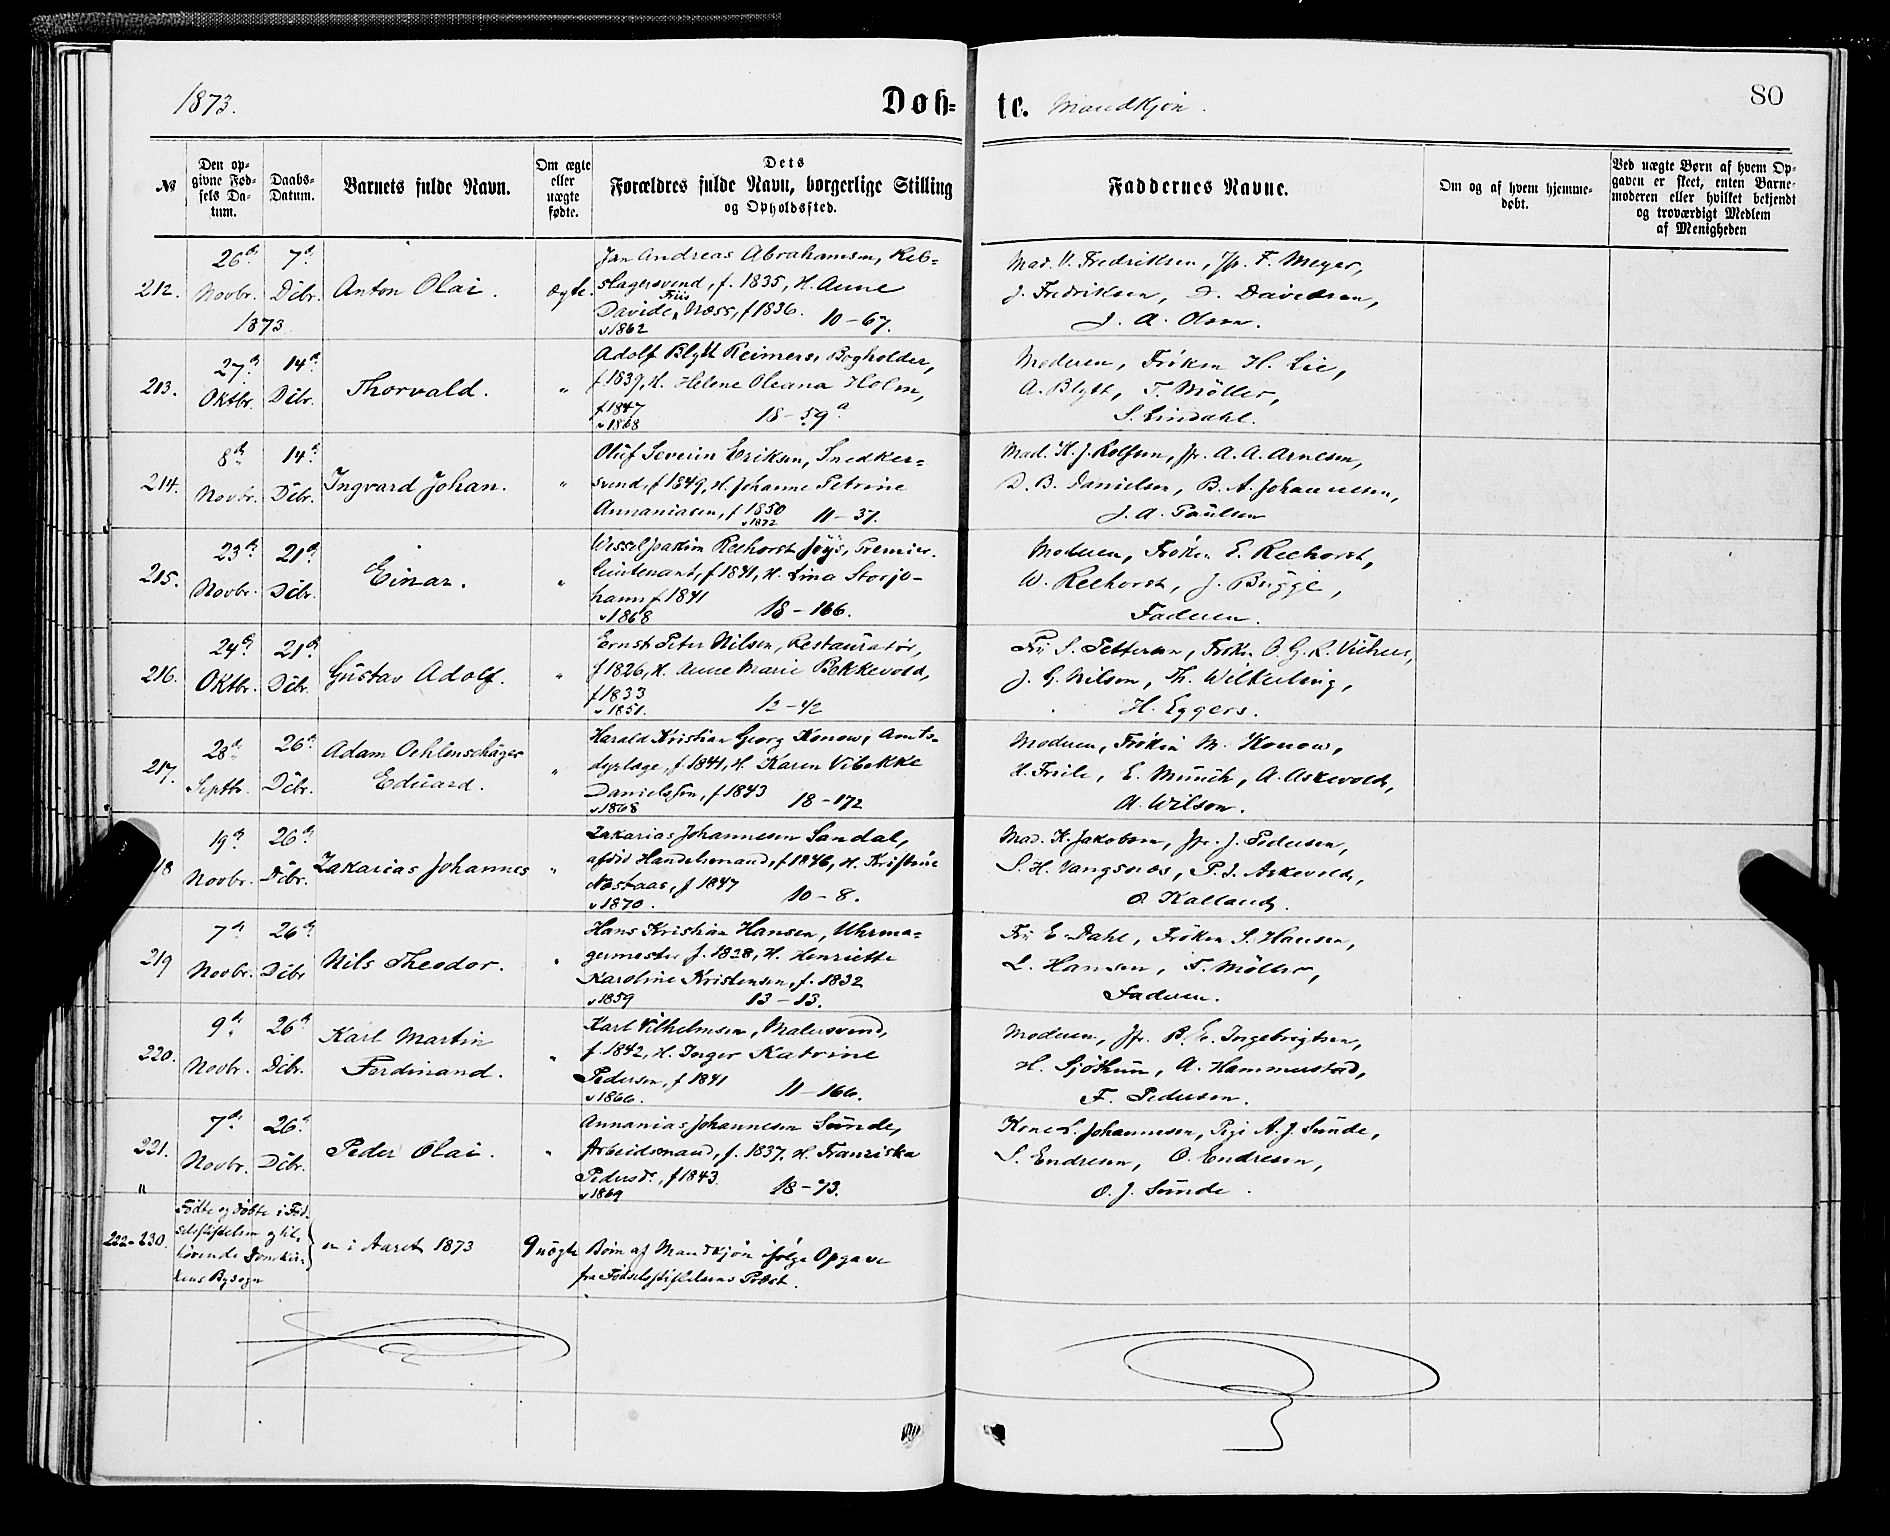 1873.
Døb-
te. Mandkjøn.
80
№
Den opgivne Fødsels Datum.
Daabs-Datum.
Barnets fulde Navn.
Om ægte eller uægte fødte.
Dets Forældres fulde Navn, borgerlige Stilling og Opholdssted.
Faddernes Navne.
Om og af hvem hjemmedøbt.
Ved uægte Børn af hvem Opgaven er skeet, enten Barnemoderen eller hvilket bekjendt og troværdigt Medlem af Menigheden
212.
26de Novbr. 1873
7de Dcbr.
Anton Olai.
ægte.
Jan Andreas Abrahamsen, Reb-
slagersvend, f. 1835, H. Anne
Davide Friis Næss, f 1836.
v 1862
10-67.
Mad. V. Fredriksen, Jfr. F. Meyer,
J. Fredriksen, D. Davidsen,
J. A. Olsen.
213.
27de Oktbr.
14de Dcbr.
Thorvald.
"
Adolf Blytt Reimers, Bogholder,
f 1839, H. Helene Oleana Holm,
f 1847
v 1868
18-59a
Moderen, Frøken H. Lie,
A. Blytt, F. Møller,
S. Lindahl.
214.
8de Novbr.
14de Dcbr.
Ingvard Johan.
"
Oluf Severin Eriksen, Snedker-
svend, f 1849, H. Johanne Petrine
Annaniasen, f 1850
v 1872
11-37.
Mad. H. J. Rolfsen, Jfr. A. A. Arnesen,
D. B. Danielsen, B. A. Johannesen,
J. A. Paulsen
215.
23de Novbr.
21de Dcbr.
Einar.
"
Wessel Joakim Reehorst Jøys, Premier-
lieutenant, f 1841, H. Lina Storjo-
hann f 1841
v 1868
18-166.
Moderen, Frøken E. Reehorst,
W. Reehorst, J. Bugge,
Faderen.
216.
24de Oktbr.
21de Dcbr.
Gustav Adolf.
"
Ernst Peter Nilsen, Restauratør,
f 1826, H. Anne Marie Bekkevold,
f 1833
v 1851.
12-42
Fru S. Pettersen,
J. G. Nilson, Th. Wilkerling,
H. Eggers.
217.
28de Septbr.
26de Dcbr.
Adam Oehlenschæger
Eduard.
"
Harald Kristian Georg Konow, Amts-
dyrlæge, f 1841, H. Karen Vibekke
Danielssen, f 1843
v 1868
18-172
Moderen, Frøken M. Konow,
H. Friele, E. Munch, A. Askevold,
A. Wilson.
18
19de Novbr.
26de Dcbr.
Zakarias Johannes
"
Zakarias Johannesen Sandal,
Handelsmand, f 1846, H. Kristine
Nøstaas, f 1847
v 1870.
10-8.
Mad. K. Jakobsen, Jfr. J. Pedersen,
S. H. Vangsnæs, P. I. Askevold,
O. Kalland.
219
7de Novbr.
26de Dcbr
Nils Theodor.
"
Hans Kristian Hansen, Uhrma-
germester f. 1828, H. Henriette
Karoline Kristensen, f. 1832
v 1859
13-13.
Fru E. Dahl, Frøken S. Hansen,
L. Hansen, F. Møller,
Faderen.
220.
9de Novbr.
26de Dcbr.
Karl Martin
Ferdinand.
"
Karl Vilhelmsen, Malersvend,
f. 1842, H. Inger Katrine
Pedersen, f 1841
v 1866.
11-166.
Moderen, Jfr. B. E. Ingebrigtsen,
H. Sjøthun, A. Hammerstad,
F. Pedersen.
221.
7de Novbr.
26de Dcbr.
Peder Olai.
"
Annanias Johannesen Sunde,
Arbeidsmand, f. 1837, H. Franziska
Pedersdr., f 1843.
v 1869
18-73.
Kone L. Johannesen, Pige A. J. Sunde,
S. Endresen, O. Endresen,
O. J. Sunde.
"
222-230.
Fødte og døbte i Fød-
selsstiftelsen og til-
hørende Domkir-
kens Bysogn
er i Aaret 1873
9 uægte
Børn af Mandkjøn ifølge Opgave
fra Fødselsstiftelsens Præst.